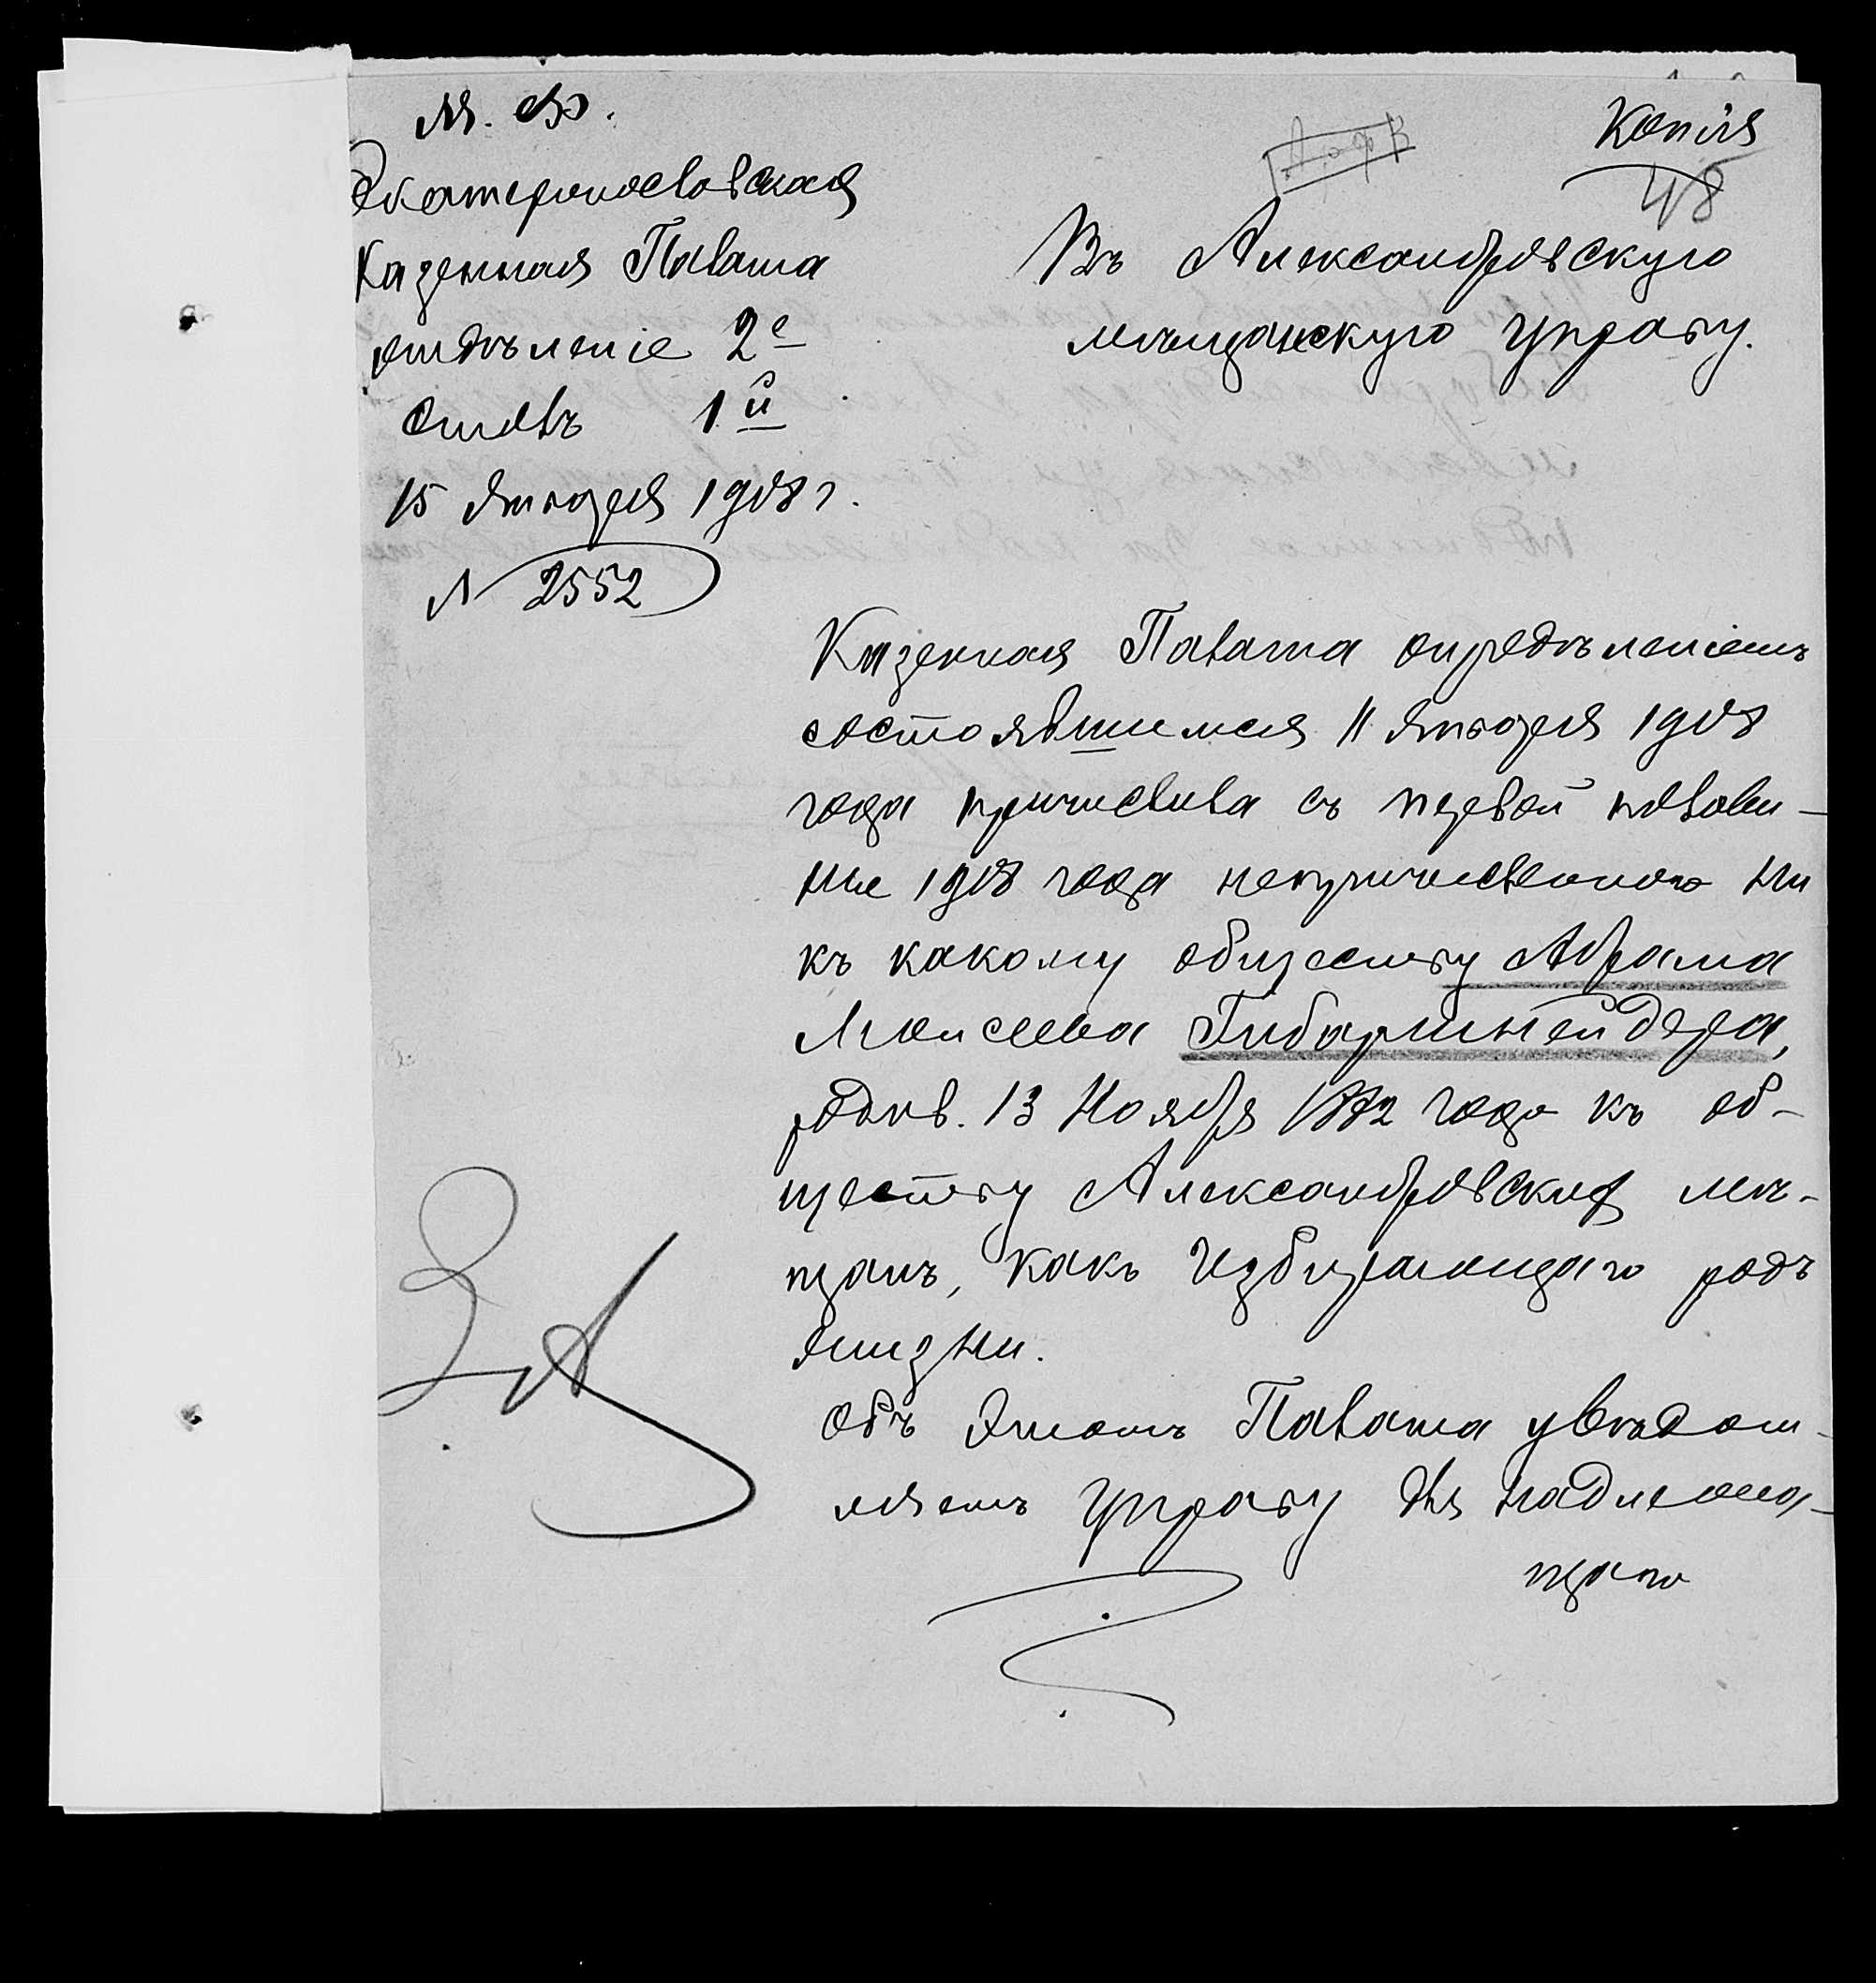 М. Ф.
Екатеринославская
Казенная Палата
отдѣленіе 2е
Столъ 1й
15 Января 1908 г.
№ 2552
Копія
48
Въ Александровскую
мѣщанскую Управу.
Казенная Палата опредѣленіемъ
состоявшимся 11 Января 1908
года причислила съ первой полови-
ны 1908 года непричисленного ни
къ какому обществу Абрама
Моисеева Гибаршнейдера,
родив. 13 Ноября 1882 года къ об-
ществу Александровскихъ мѣ-
щанъ, какъ избирающаго родъ
жизни.
Объ этомъ Палата увѣдом-
ляетъ Управу для надлежа-
щаго